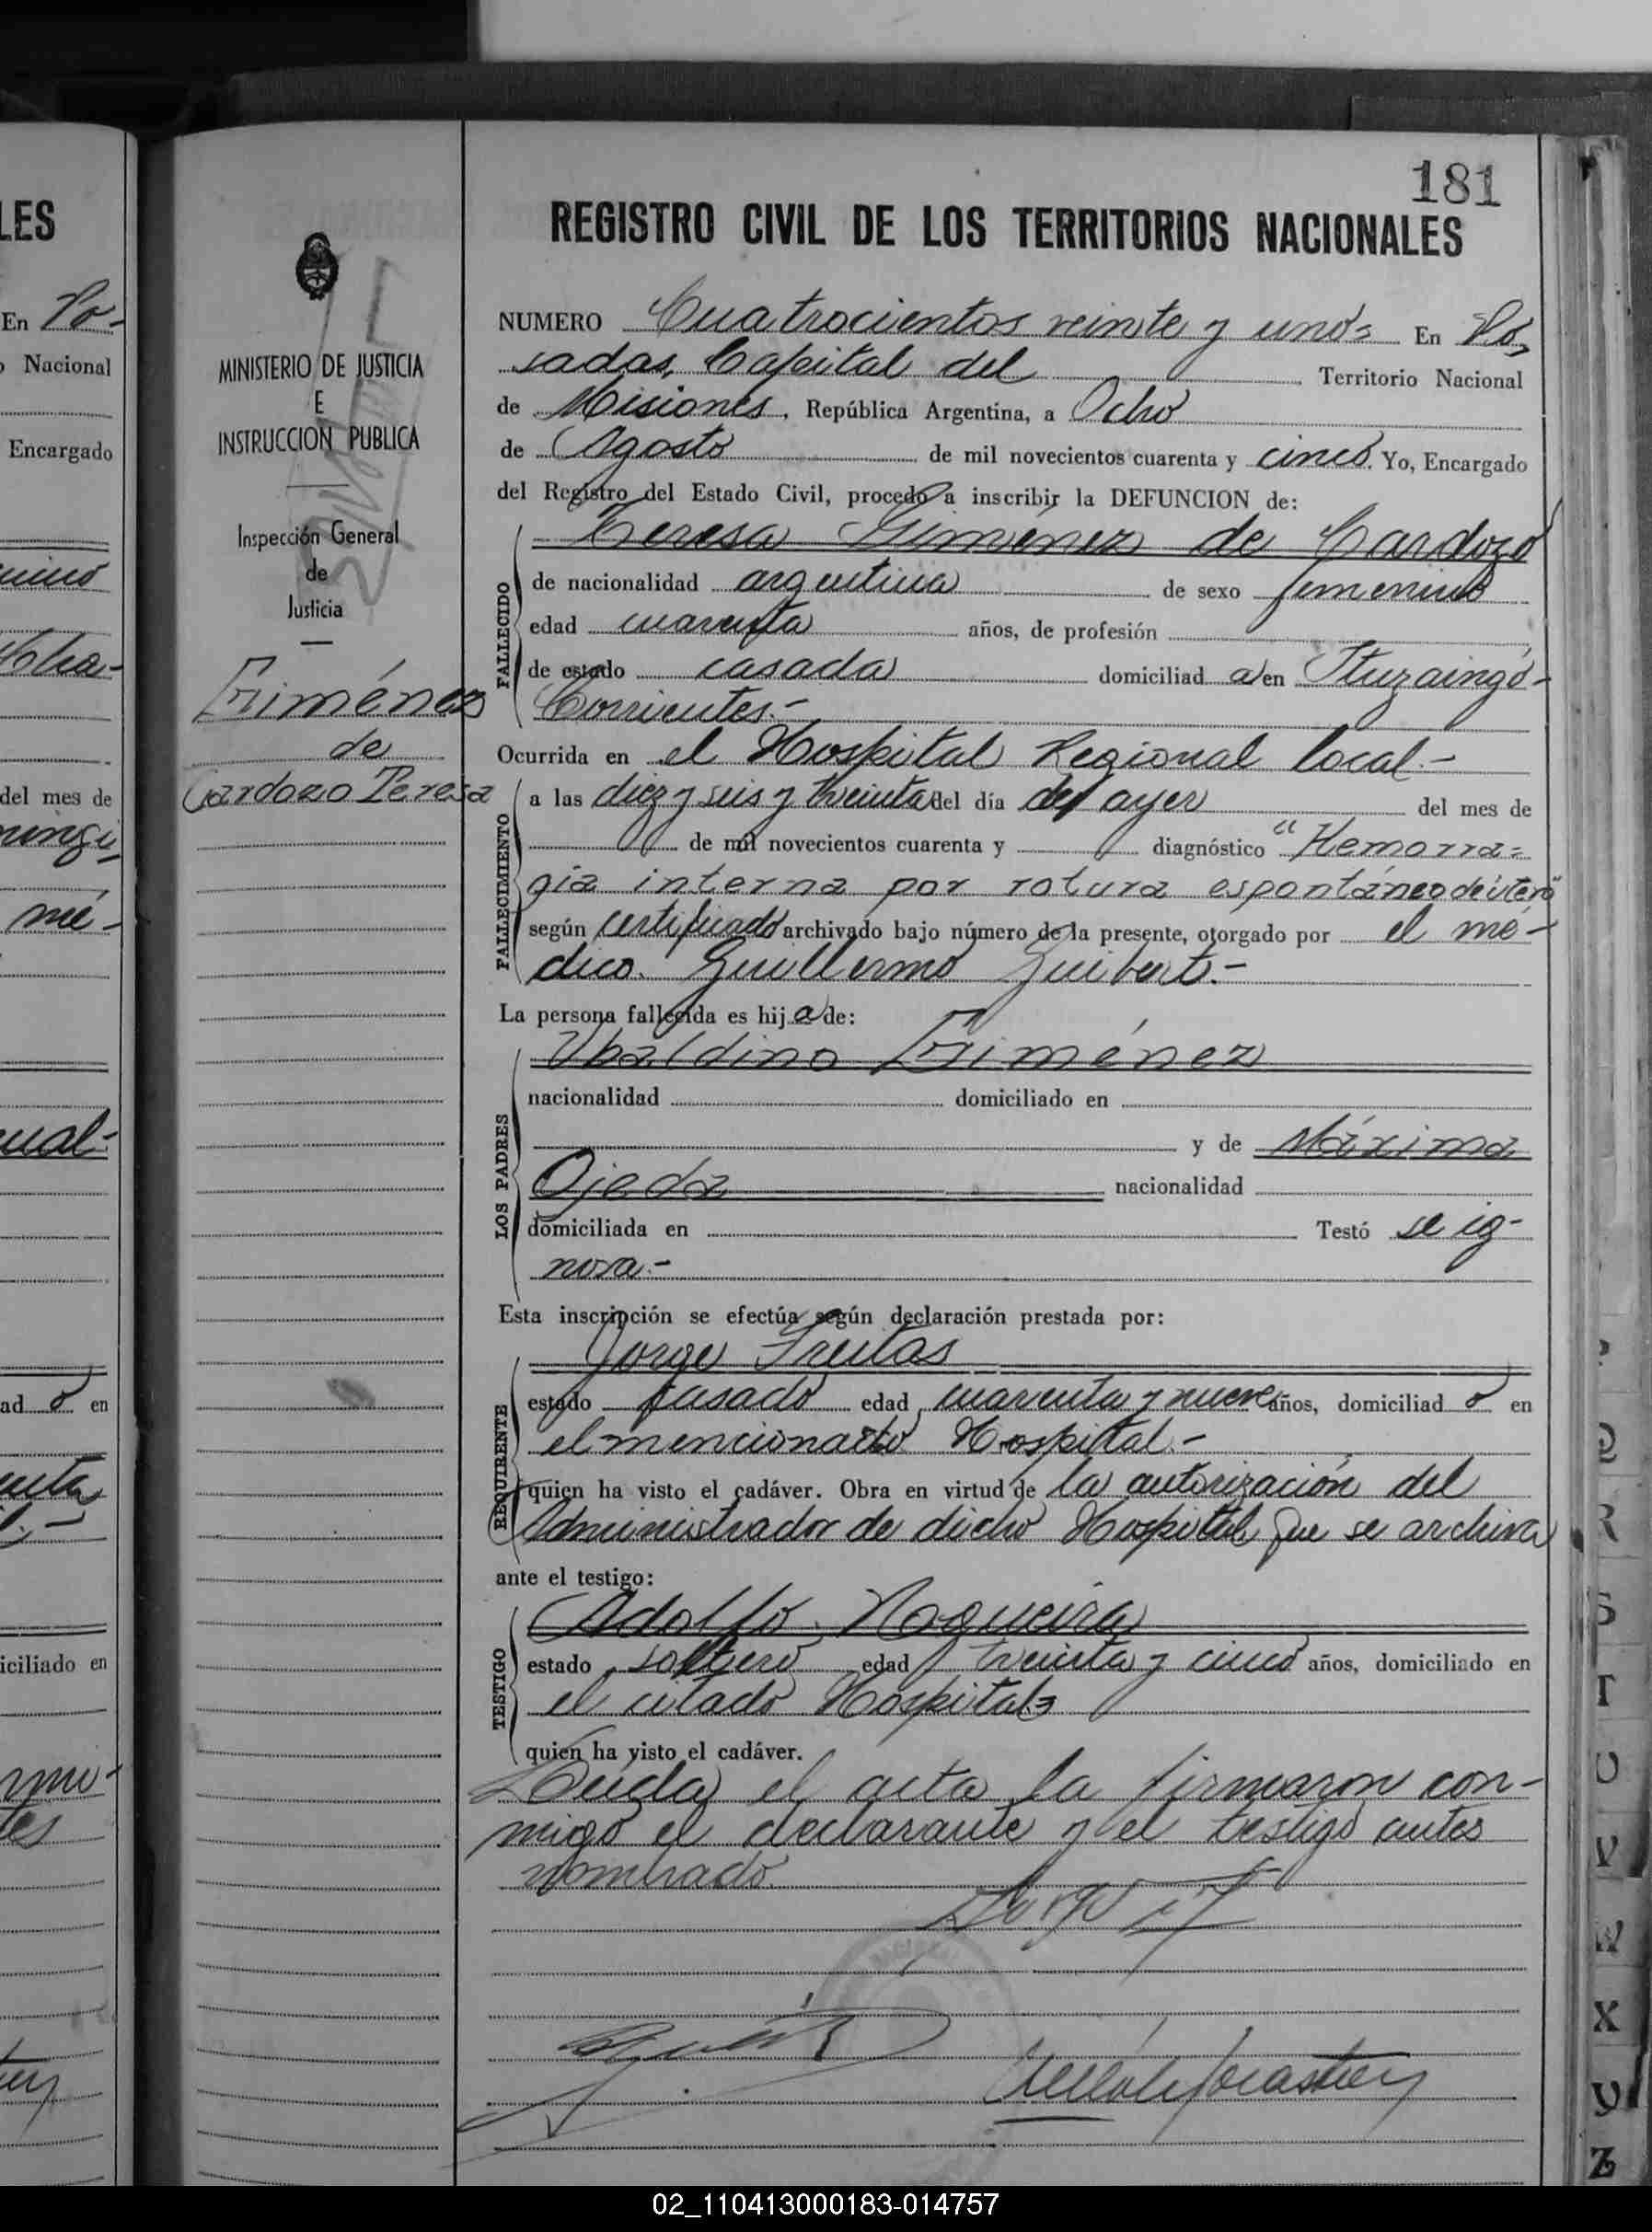 181
REGISTRO CIVIL DE LOS TERRITORIOS NACIONALES
NUMERO Cuatrocientos veinte y uno= En Po-
sadas, Capital del Territorio Nacional
de Misiones, República Argentina, a Ocho
de Agosto de mil novecientos cuarenta y cinco. Yo, Encargado
del Registro del Estado Civil, procedo a inscribir la DEFUNCION de:
Teresa Giménez de Cardozo
FALLECIDO
de nacionalidad argentina de sexo femenino
edad cuarenta años, de profesión
de estado casada domiciliad a en Ituzaingó-
Corrientes.-
Ocurrida en el Hospital Regional local.-
FALLECIMIENTO
a las diez y seis y treinta del día de ayer del mes de
de mil novecientos cuarenta y diagnóstico "Hemorra=
gia interna por rotura espontáneo de útero"
según certificado archivado bajo número de la presente, otorgado por el mé-
dico. Guillermo Guibert.-
La persona fallecida es hij a de:
Ubaldino Giménez
LOS PADRES
nacionalidad domiciliado en
y de Máxima
Ojeda nacionalidad
domiciliada en Testó se ig-
nora.-
Esta inscripción se efectúa según declaración prestada por:
Jorge Freitas
REQUIRENTE
estado casado edad cuarenta y nueve años, domiciliad o en
el mencionado Hospital.-
quien ha visto el cadáver. Obra en virtud de la autorización del
Administrador de dicho Hospital que se archiva
ante el testigo:
Adolfo Nogueira
TESTIGO
estado soltero edad treinta y cinco años, domiciliado en
el citado Hospital=
quien ha visto el cadáver.
Leída el acta la firmaron con-
migo el declarante y el testigo antes
nombrado.
MINISTERIO DE JUSTICIA
E
INSTRUCCION PUBLICA
Inspección General
de
Justicia
Giménez
de
Cardozo Teresa
LES
En Po-
Nacional
Encargado
del mes de
mé-
ad o en
iciliado en
Q
R
S
T
U
V
W
X
Y
Z
02_110413000183-014757